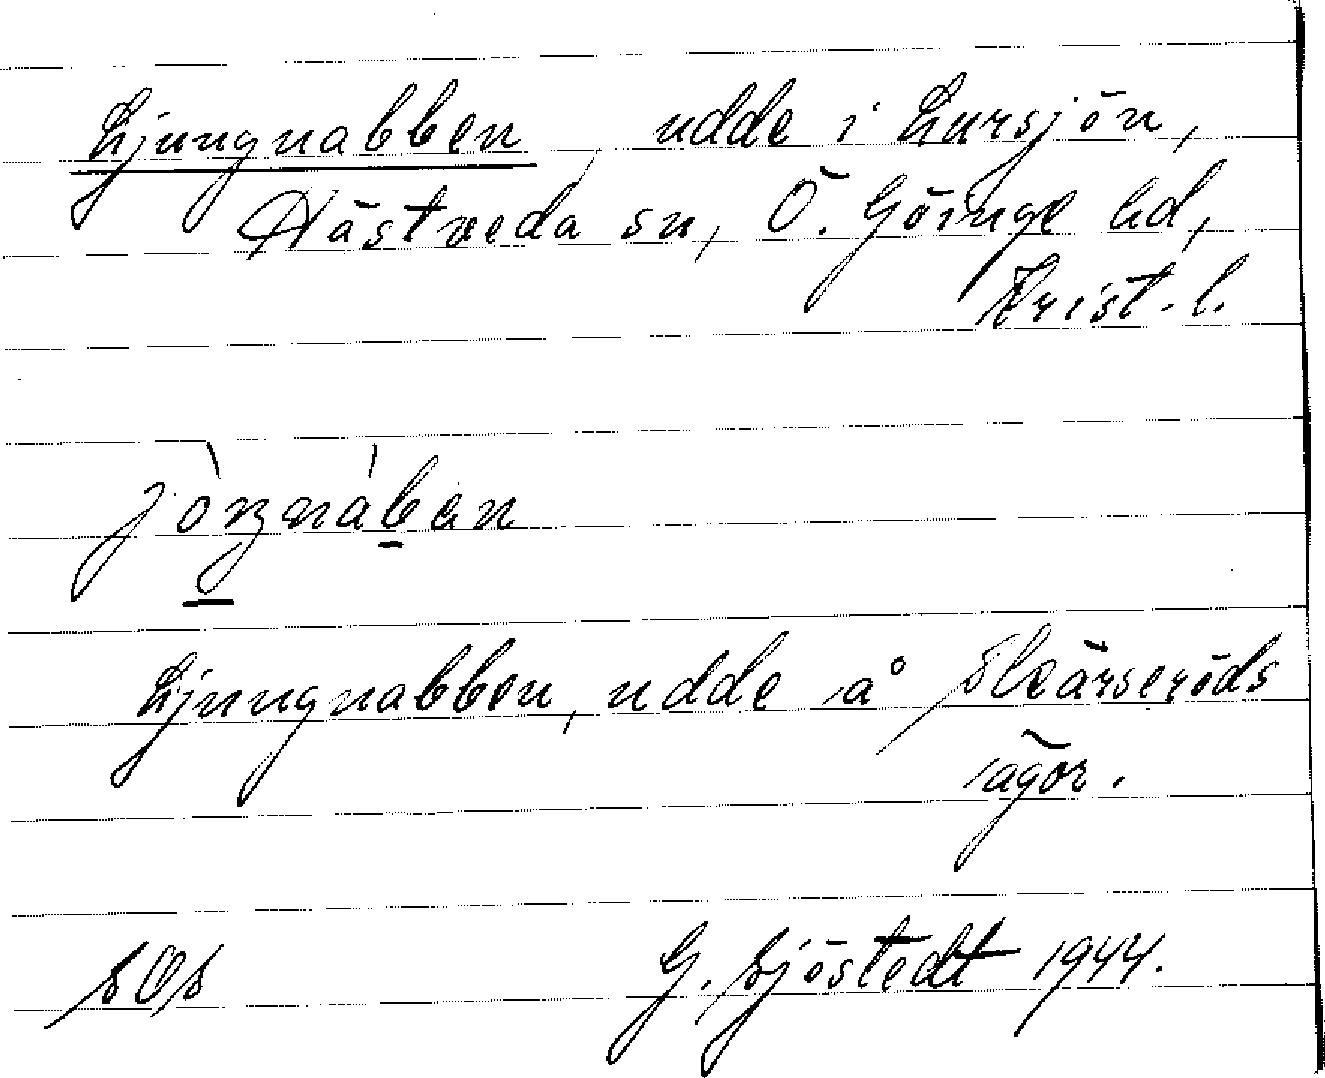 Ljungnabben, udde i Lursjön,
Hästveda sn, Ö. Göinge hd,
Krist. l.
Ljungnabben, udde å Skärseröds
ägor.
SOS G. Sjöstedt 1944.